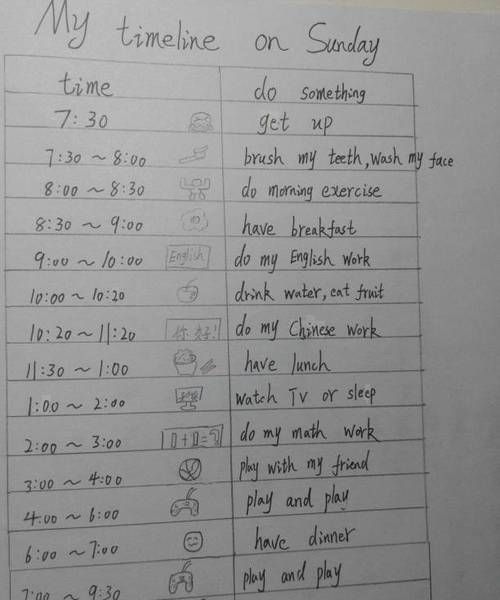 My timeline on Sunday
time do something
7:30 get up
7:30 ~ 8:00 brush my teeth, wash my face
8:00 ~ 8:30 do morning exercise
8:30 ~ 9:00 have breakfast
9:00 ~ 10:00 English do my English work
10:00 ~ 10:20 drink water, eat fruit
10:20 ~ 11:20 你好! do my Chinese work
11:30 ~ 1:00 have lunch
1:00 ~ 2:00 watch TV or sleep
2:00 ~ 3:00 do my math work
3:00 ~ 4:00 play with my friend
4:00 ~ 6:00 play and play
6:00 ~ 7:00 have dinner
7:00 ~ 9:30 play and play